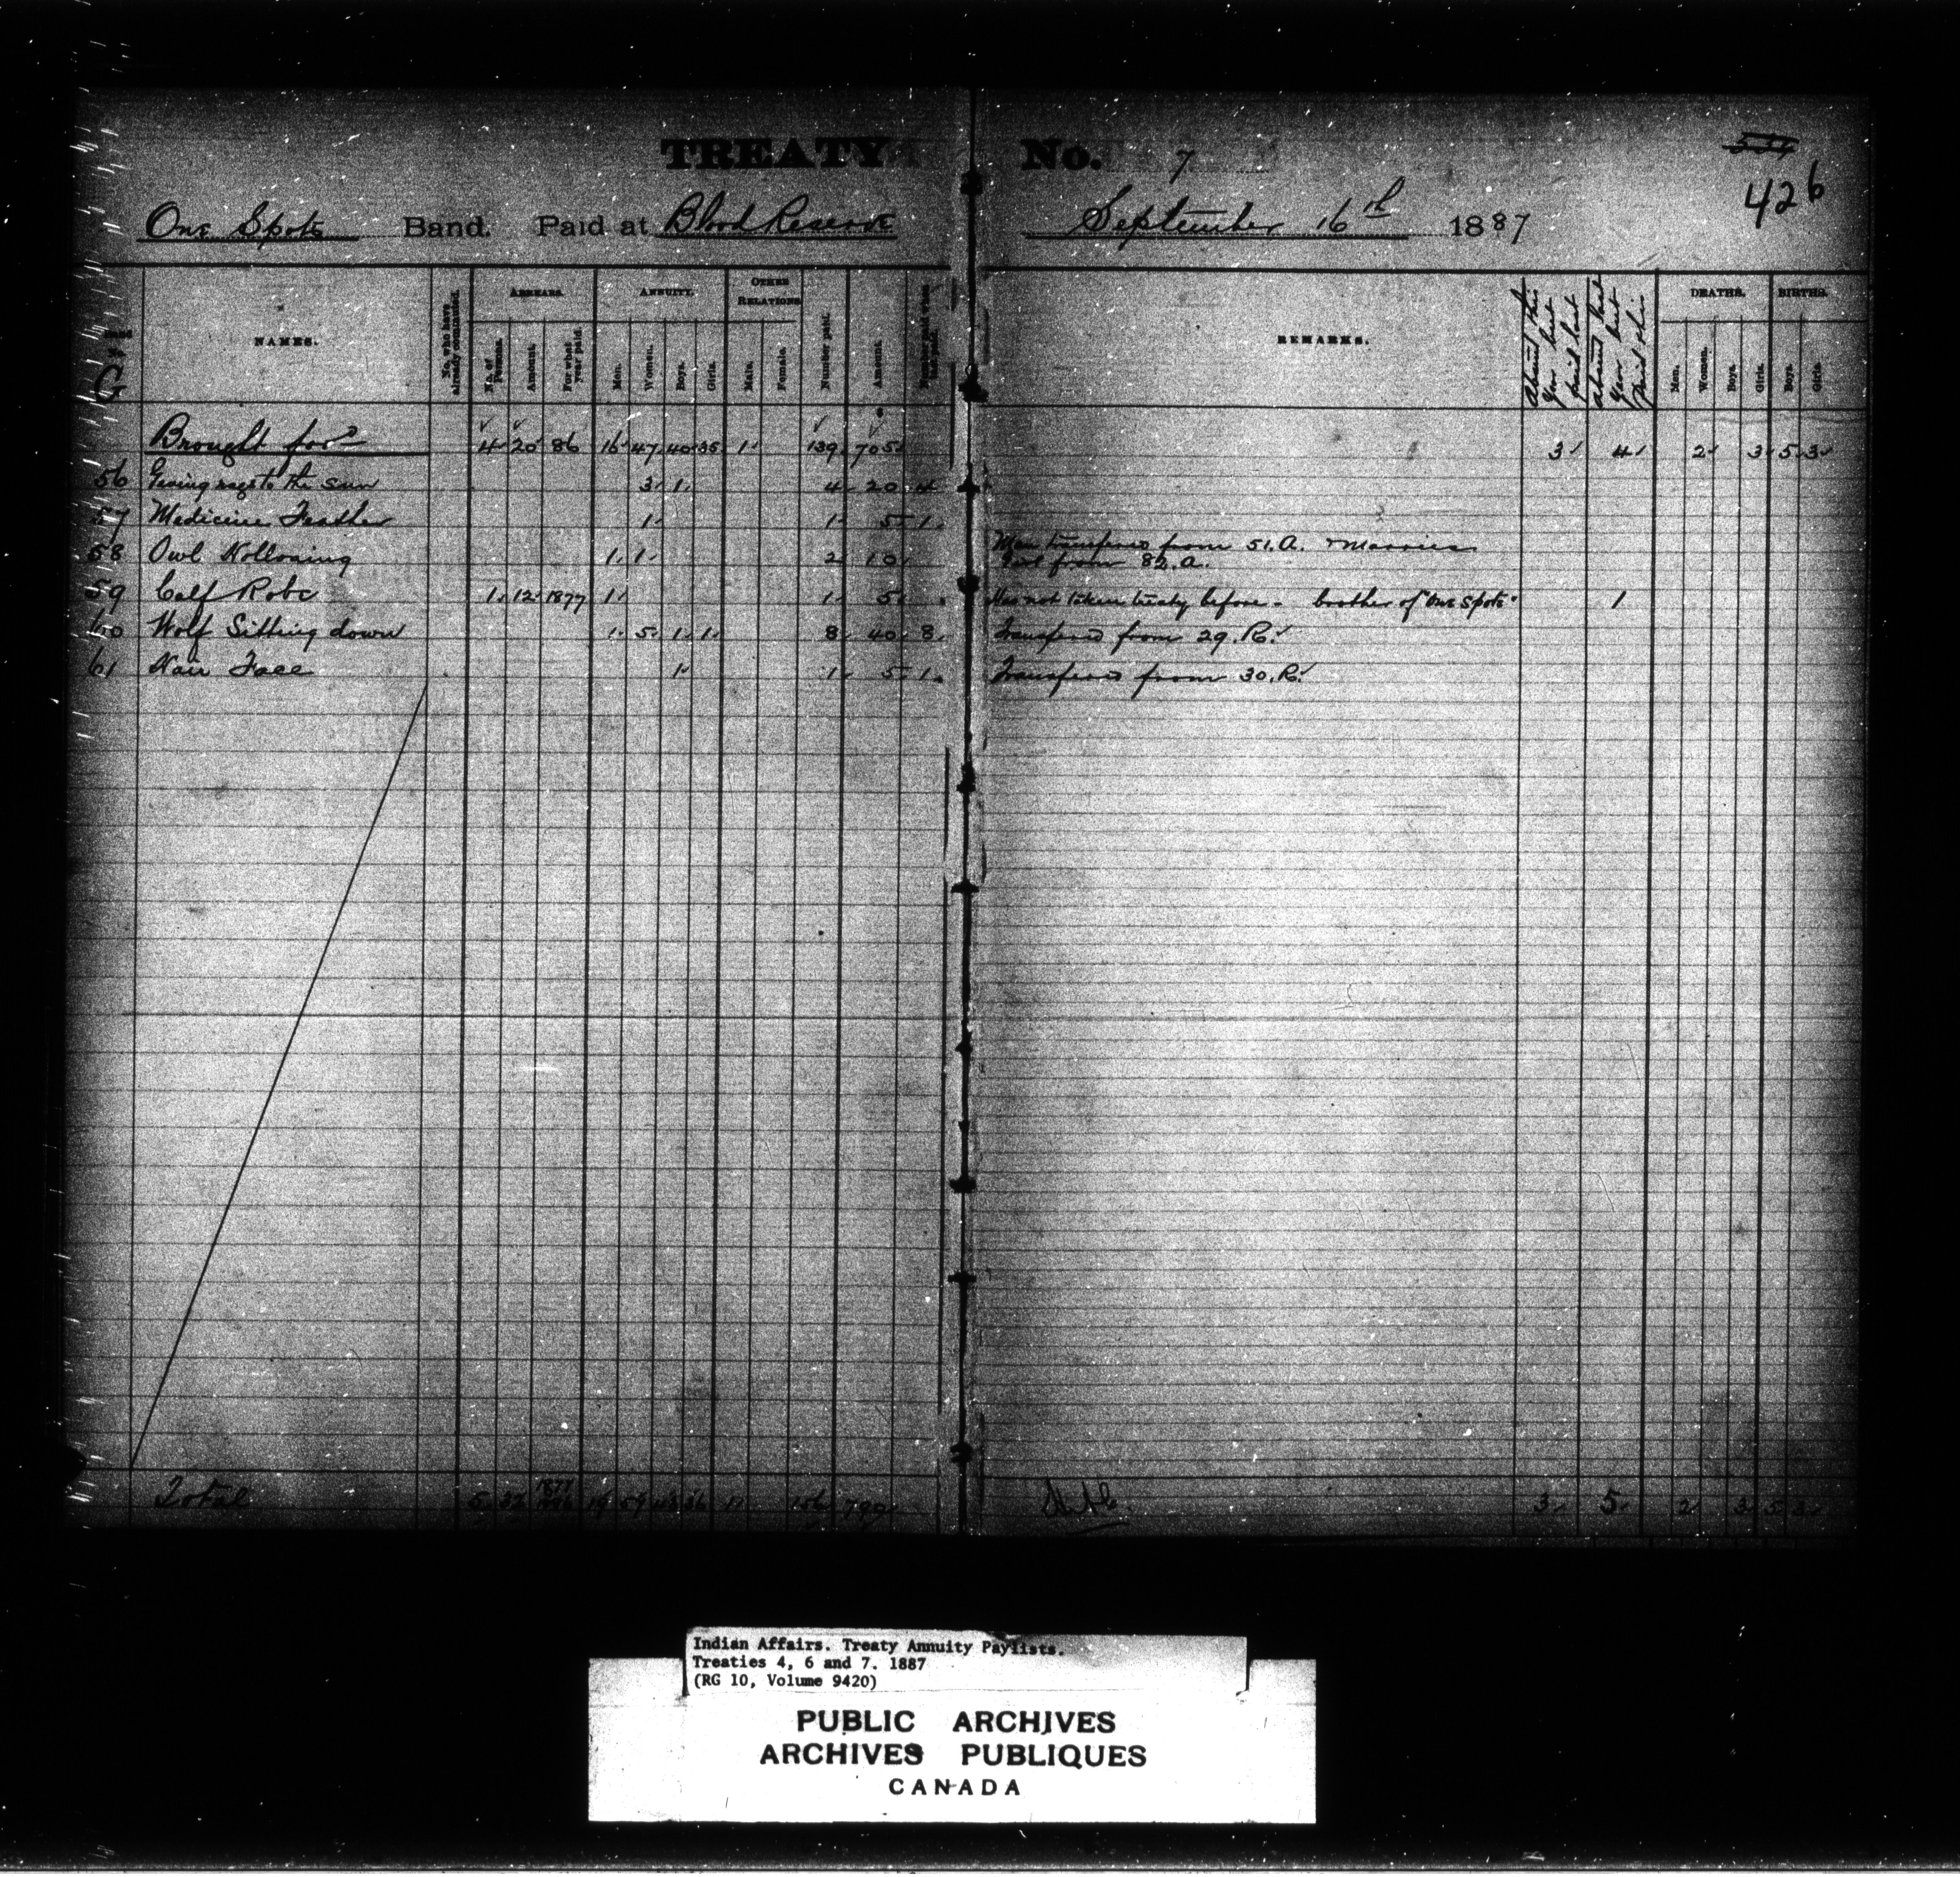 TREATY No. 7
554
426
One Spots Band. Paid at Blood Reserve September 16th 1887
Band
G
NAMES.
No. who have already commuted.
ARREARS.
No. of Persons.
Amount.
For what year paid.
ANNUITY.
Men.
Women.
Boys.
Girls.
OTHER RELATIONS
Male.
Female.
Number paid.
Amount.
REMARKS.
Absent this Year but paid last
Absent last Year but paid this
DEATHS.
Men.
Women.
Boys.
Girls.
BIRTHS.
Boys.
Girls.
Brought for'd 4 20 86 16 47 40 35 1 139 705 3 4 2 3 5 3
56 Giving rags to the sun 3 1 4 20 4
57 Medicine Feather 1 1 5 1
58 Owl Hollowing 1 1 2 10 Man transferred from 51.A. Married
Girl from 82.A.
59 Calf Robe 1 12 1877 1 1 5 Has not taken treaty before - brother of "One Spots" 1
60 Wolf Sitting down 1 5 1 1 8 40 8 Transferred from 29.R.
61 Hair Face 1 1 5 1 Transferred from 30.R.
Total 5 32 1877 19 57 43 36 1 156 790 3 5 2 3 5 3
Indian Affairs. Treaty Annuity Paylists.
Treaties 4, 6 and 7. 1887
(RG 10, Volume 9420)
PUBLIC ARCHIVES
ARCHIVES PUBLIQUES
CANADA